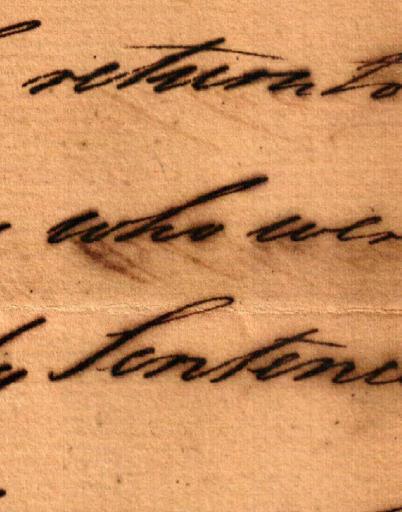 return to
who wer
by Sentenc